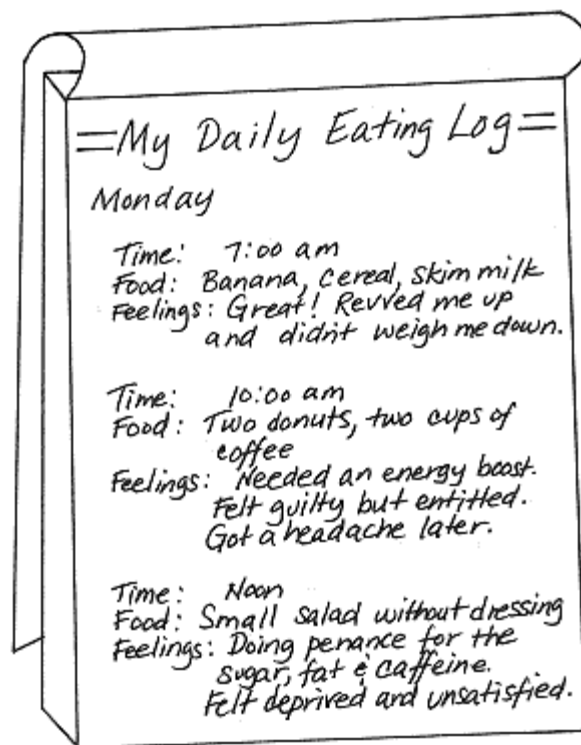 My Daily Eating Log
Monday
Time: 7:00 am
Food: Banana, cereal, skim milk
Feelings: Great! Revved me up
and didn't weigh me down.
Time: 10:00 am
Food: Two donuts, two cups of
coffee
Feelings: Needed an energy boost.
Felt guilty but entitled.
Got a headache later.
Time: Noon
Food: Small salad without dressing
Feelings: Doing penance for the
sugar, fat & caffeine.
Felt deprived and unsatisfied.